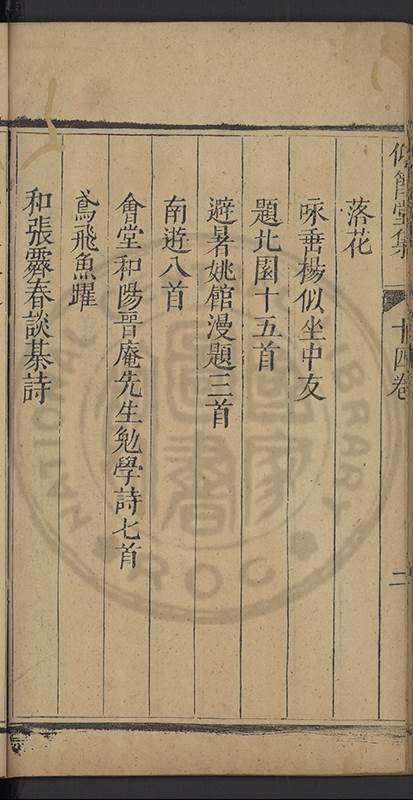 仰節堂集 十四卷 二
落花
咏垂楊似坐中友
題北園十五首
避暑姚館漫題三首
南遊八首
會堂和陽晉庵先生勉學詩七首
鳶飛魚躍
和張霽春談棊詩